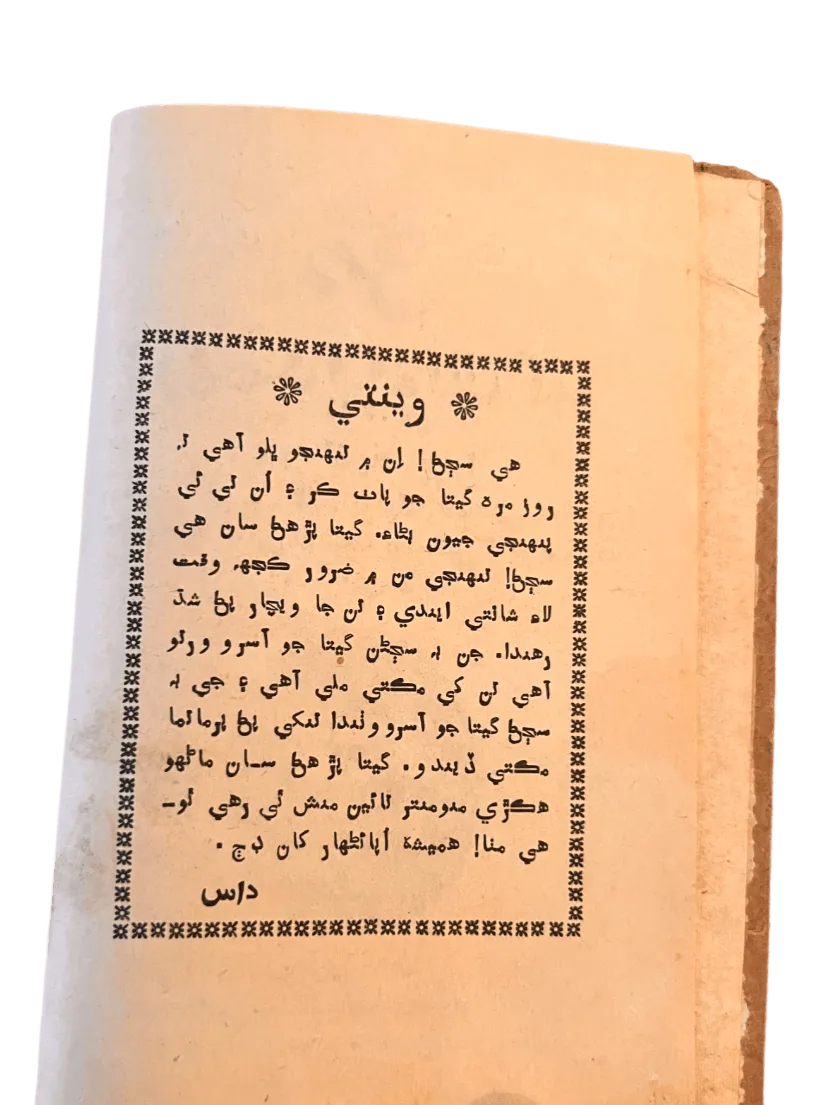 وينتي
هي سڄڻ! اِن ۾ تنهنجو ڀلو آهي تہ
روز مره گيتا جو پاٺ ڪر ۽ اُن تي ئي
پنهنجي جيون بڻاءِ. گيتا پڙهڻ سان هي
سڄڻ! تنهنجي من ۾ ضرور ڪجهہ وقت
لاءِ شانتي ايندي ۽ تن جا ويچار پڻ شڌ
رهندا. جن بہ سڄڻن گيتا جو آسرو ورتو
آهي تن کي مڪتي ملي آهي ۽ جي بہ
سڄڻ گيتا جو آسرو وٺندا تنکي پڻ پرماتما
مڪتي ڏيندو. گيتا پڙهڻ ســان ماڻهو
هڪڙي منومنتر تائين منش ٿي رهي ٿو ــ
هي منا! هميشہ اُپائڻهار کان ڊڄ .
داس